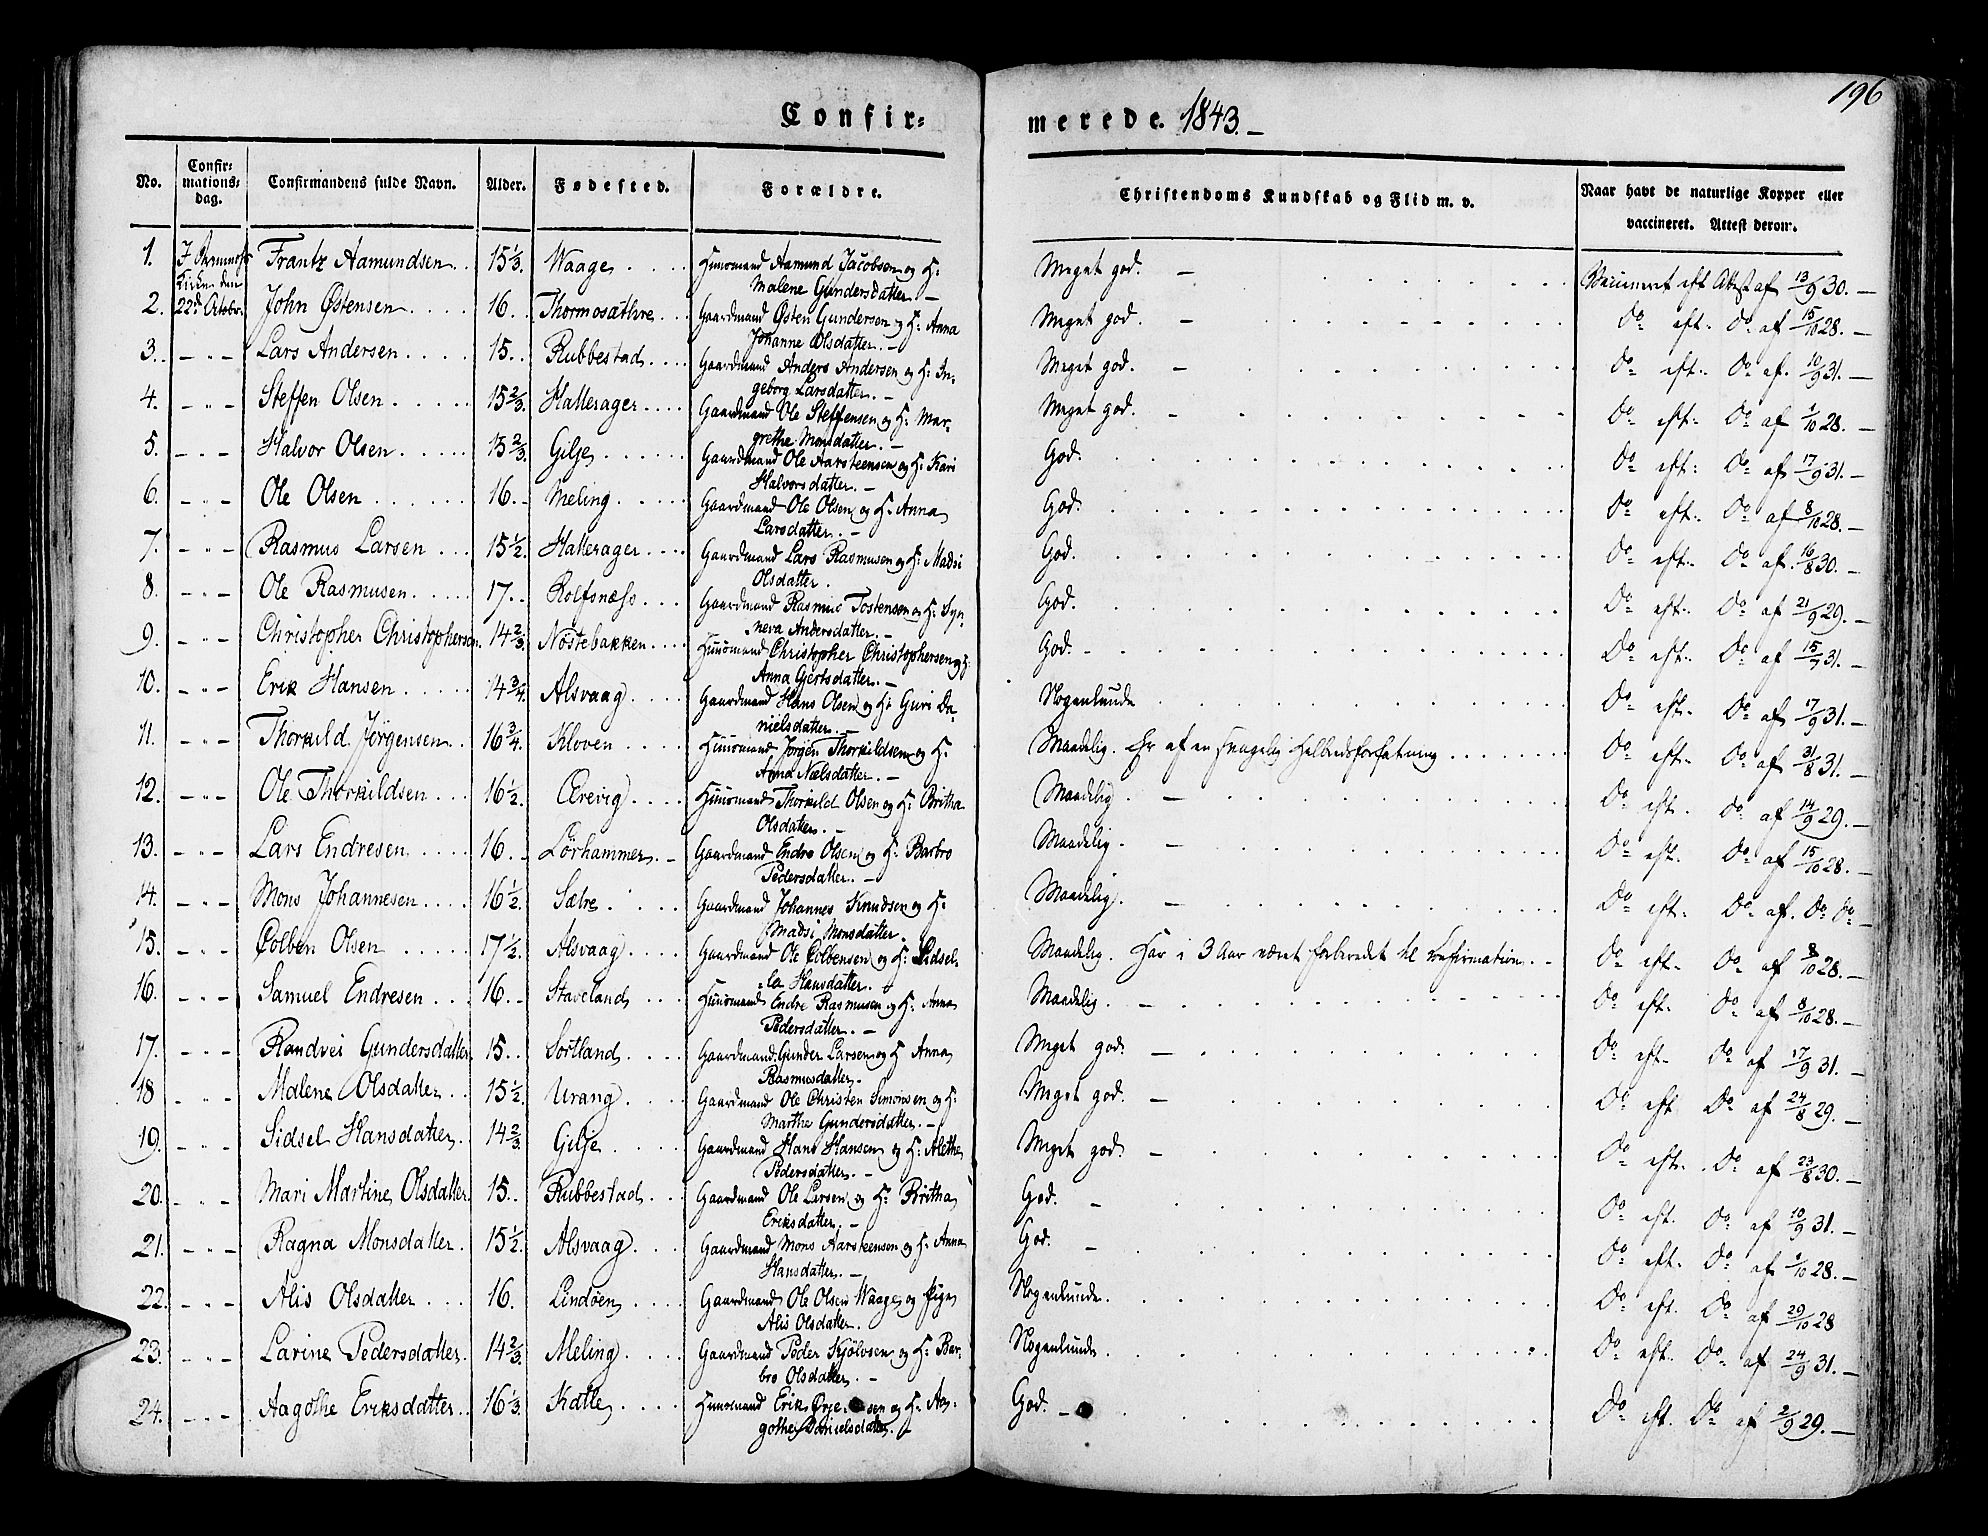 196
Confir- merede. 1843. —
No. Confir-mations-dag. Confirmandens fulde Navn. Alder. Fødested. Forældre. Christendoms Kundskab og Flid m. v. Naar havt de naturlige Kopper eller vaccineret. Attest derom.
1. Kirken den Frantz Aamundsen 15 1/3. Waage Huusmand Aamund Jacobsen og H: Malene Gundersdatter. — Meget god. — Vaccineret eft Attest af 13/9 30. —
2. 22d October John Østensen 16. Thormosæthre Gaardmand Østen Gundersen og H: Anna Johanne Olsdatter. — Meget god. — Do eft. Do af 15/10 28. —
3. — " — Lars Andersen 15. Rubbestad Gaardmand Anders Andersen og H: Ingeborg Larsdatter. — Meget god. — Do eft. Do af 10/9 31. —
4. — " — Steffen Olsen 15 2/3. Hallerager Gaardmand Ole Steffensen og H: Margrethe Monsdatter. — Meget god. — Do eft. Do af 1/10 28. —
5. — " — Halvor Olsen 15 2/3. Gilje Gaardmand Ole Aarsteensen og H: Kari Halvorsdatter. — God. Do eft: Do af 17/9 31. —
6. — " — Ole Olsen 16. Meling Gaardmand Ole Olsen og H: Anna Larsdatter. — God. Do eft. Do af 8/10 28. —
7. — " — Rasmus Larsen 15 1/2. Hallerager Gaardmand Lars Rasmusen og H: Madsi Olsdatter. God. Do eft. Do af 16/8 30. —
8. — " — Ole Rasmusen 17. Rolfsnæss Gaardmand Rasmus Tostensen og H: Synneva Andersdatter. — God. Do eft. Do af 21/9 29. —
9. — " — Christopher Christophersen 14 2/3. Nöstebakken Huusmand Christopher Christophersen og H: Anna Gjertsdatter. — God. — Do eft. Do af 15/7 31. —
10. — " — Erik Hansen 14 3/4. Alsvaag Gaardmand Hans Olsen og H: Guri Danielsdatter. — Nogenlunde Do eft. Do af 17/9 31. —
11. — " — Thorkild Jörgensen 16 3/4. Kloven Huusmand Jörgen Thorkildsen og H: Anna Nælsdatter. — Maadelig. Er af en svagelig Helbredsforfatning Do eft. Do af 31/8 31. —
12. — " — Ole Thorkildsen 16 1/2. Ærevig Huusmand Thorkild Olsen og H: Britha Olsdatter. — Maadelig. — Do eft. Do af 14/9 29. —
13. — " — Lars Endresen 16. Lörhammer Gaardmand Endre Olsen og H: Barbro Pedersdatter. — Maadelig. — Do eft. Do af 15/10 28. —
14. — " — Mons Johannesen 16 1/2. Sætre Gaardmand Johannes Knudsen og H: Madsi Monsdatter. Maadelig. — Do eft. Do af. Do Do —
15. — " — Colben Olsen 17 1/2. Alsvaag Gaardmand Ole Colbensen og H: Sidsella Hansdatter. Maadelig. Har i 3 Aar været forberedet til Confirmation. Do eft. Do af 8/10 28. —
16. — " — Samuel Endresen 16. Staveland Huusmand Endre Rasmusen og H: Anna Pedersdatter. — Maadelig. — Do eft. Do af 8/10 28. —
17. — " — Randvei Gundersdatter 15. Sortland Gaardmand Gunder Larsen og H Anna Rasmusdatter. Meget god. — Do eft. Do af 17/9 31. —
18 — " — Malene Olsdatter 15 1/2. Urang Gaardmand Ole Christen Simonsen og H: Marthe Gundersdatter. — Meget god. — Do eft Do af 24/8 29. —
19. — " — Sidsel Hansdatter. 14 2/3 Gilje Gaardmand Hans Hansen og H: Alethe Pedersdatter. — Meget god. — Do eft. Do af 23/8 30. —
20. — " — Mari Martine Olsdatter 15. Rubbestad Gaardmand Ole Larsen og H: Britha Eriksdatter. — God. — Do eft. Do af 10/9 31. —
21. — " — Ragna Monsdatter. 15 1/2. Alsvaag Gaardmand Mons Aarsteensen og H: Anna Hansdatter. — God. — Do eft. Do af 1/10 28. —
22. — " — Alis Olsdatter 16. Lindöen Gaardmand Ole Olsen Waage og Pige Alis Olsdatter. Nogenlunde. Do eft. Do af 29/10 28
23. — " — Larine Pedersdatter. 14 2/3. Meling Gaardmand Peder Kjölvsen og H: Barbro Olsdatter. — Nogenlunde. Do eft. Do af 24/9 31. —
24. — " — Aagothe Eriksdatter 16 1/3. Kalle Huusmand Erik og H: Aagothe Danielsdatter. — God. — Do eft. Do af 2/9 29. —